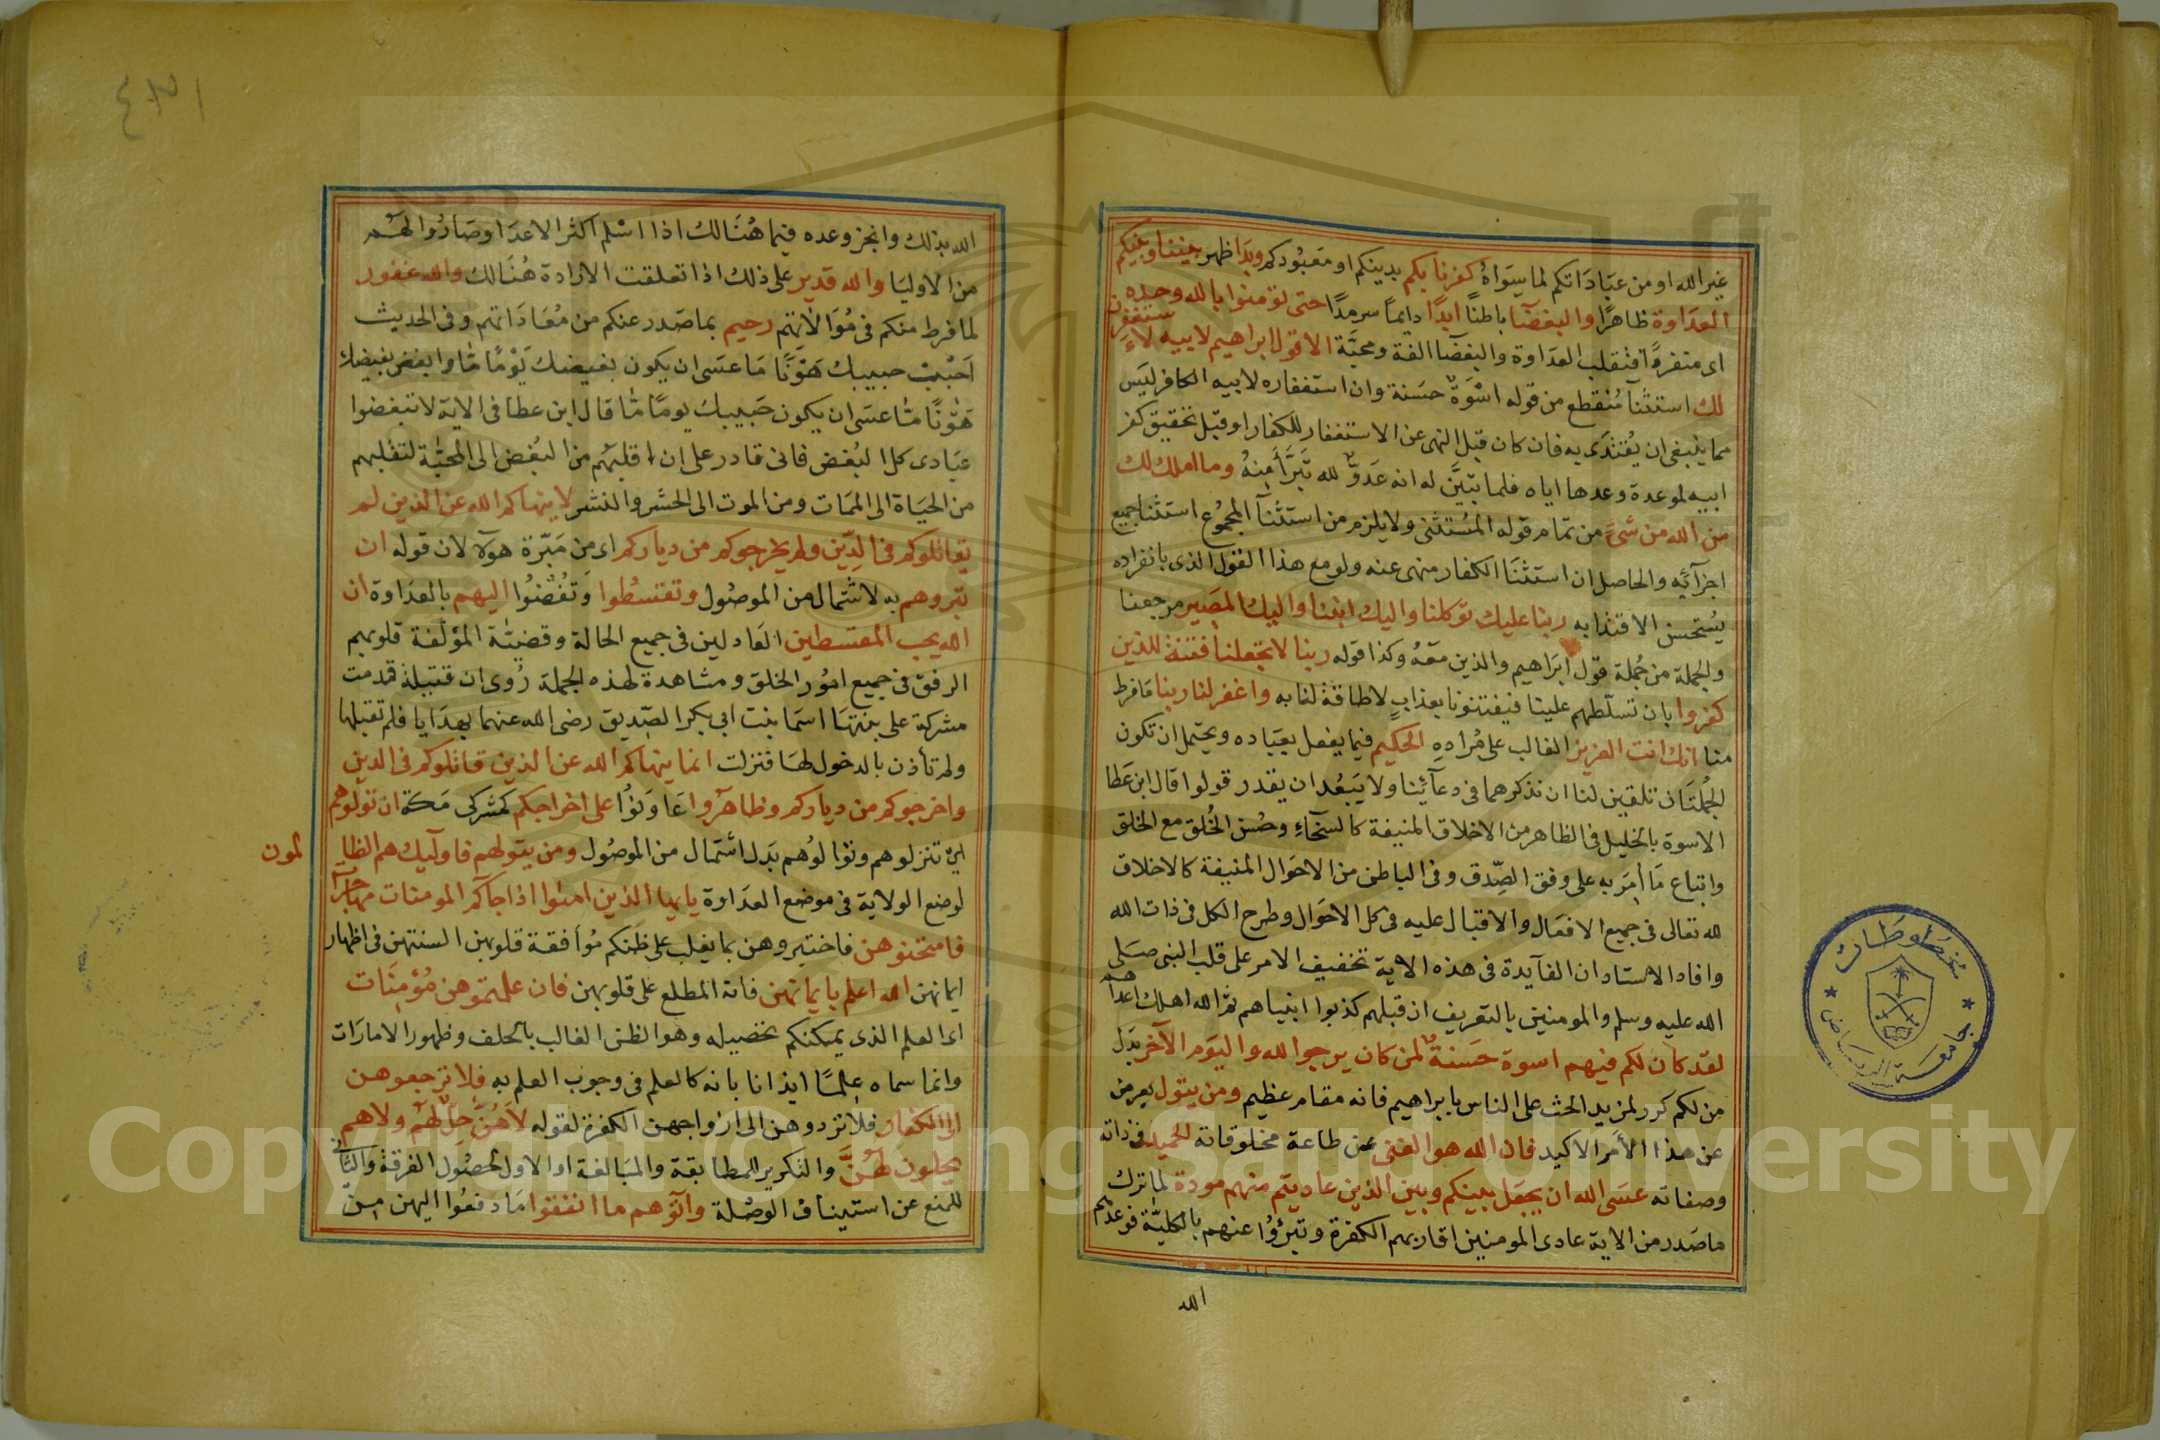 غير الله او من عبادانكم لما سواه كفرنا بكم بدينكم او معبودكم وبدا ظهر بيننا وبينكم
العداوة ظاهرًا والبغضآ باطنًا ابدًا دايمًا سرمدًا حتى تؤمنوا بالله وحده
اى منفردًا فتقلب العداوة والبغضآ الفة ومحبّة الا قول ابراهيم لابيه لاَءَ ستغفرن
لك استثنآ مُنقطع من قوله اسْوَة حسَنة وان استغفاره لابيه الكافر ليَس
مما ينبغى ان يُقتدَى به فان كان قبل النهى عن الاستغفار للكفار او قبل تحقيق كفر
ابيه لموعدة وعدها اياه فلما تبيَّن له انه عَدوٌّ لله تَبَرَّأ مِنهُ وما املك لك
من الله من شئً من تمام قوله المسُتثنى ولا يلزم من استثنآ المجموُع استثنا جميع
اجزآئه والحاصل ان استثنَا الكفار منهى عنه ولو مع هذا القول الذى بانفراده
يسُتحسن الاقتدا به ربنا عليك توكلنا واليك انبنا واليك المصَير مرجعنا
والجملة من جُملة قول ابَراهيم والذين معَهُ وكذا قوله ربنا لا تجعلنا فتنة للذين
كفروا بان تسلّطهم علينا فيفتنونا بعذابٍ لا طاقة لنا به واغفر لنا ربنا مَا فرط
منا انك انت العزيز الغالب على مُرادِهِ الحكيم فيما يفعل بعبَاده ويحتمل ان تكون
الجُملتَان تلقين لنا ان نذكرهما فى دعآئِنا ولا يَبعُد ان يقدر قولوا قال ابن عَطا
الاسوة بالخليل فى الظاهر من الاخلاق المنيفة كالسخآءِ وحُسن الخُلق مع الخلق
واتباع مَا أُمِرَ به على وفق الصِّدق وفى الباطن من الاحَوال المنيفة كالاخلاق
لله تعالى فى جميع الافعَال والاقبال عليه فى كل الاحَوال وطرح الكل فى ذات الله
وافاد الاستاد ان الفآيدة فى هذه الاية تخفيف الامر على قلب النبى صَلى
الله عليه وسلم والمومنين بالتعريف ان قبلهم كذبوا انبياهم ثم الله اهلك اعدآهم
لقد كان لكم فيهم اسوة حَسَنةٌ لمن كان يرجوا لله واليَوم الآخر بدَل
من لكم كرر لمزيد الحث على الناس بابراهيم فانه مقام عظيم ومن يتول يعرض
عن هذا الأمَر الاكيد فان الله هو الغنى عن طاعة مخلوقاته الحميد فى ذاته
وصفاته عسَى الله ان يجعَل بينكم وبين الذين عاديتم منهم مودة لما نزلت
ما صَدر من الاية عادى المومنين اقاربهم الكفرة وتبرُؤُا عنهم بالكليّة فوعدهم
الله
٤٣١
الله بذلك وانجز وعده فيما هُنَالك اذا اسْلم اكثر الاعدَا وصَارُوا لهَم
من الاوليَا والله قدير على ذلك اذا تعلقت الارادة هُنَالك والله غفور
لما فرط منكم فى مُوَالاتهم رحيم بما صدر عنكم من مُعَادَاتهم وفى الحديث
اَحْبْب حبيبك هَوْنًا مَا عسَى ان يكون بغيضك يَوْمًا مَّا وابغض بغيضك
هَوْنًا مَّا عسَى ان يكون حَبيبكَ يومًا مَّا قال ابن عطا فى الاية لا تبغضوا
عبَادى كل البُغض فانى قادر على ان اقلبهُم من البُغض الى المحبَّة لتقلبهم
من الحيَاة الى الممَات ومن الموت الى الحشر والنشر لا ينهاكم الله عن الذين لم
يقاتلوكم فى الدِّين ولم يخرجوكم من دياركم اى من مَبّرة هؤلا لان قوله ان
تبروهم به لاشتمال من الموصُول وتقتسُطوا وَتُفضُوا اليهم بالعدَاوة ان
الله يحب المقتسطين العَادلين فى جميع الحالة وقضيَّة المؤلّفة قلوبهم
الرفق فى جميع امُور الخلق ومشاهدة لهذه الجملة رُوى ان قتيلة قدمت
مشركة على بنتهَا اسمَا بنت ابى بكر الصّديق رضى الله عنهما بهدَايا فلم تقبلها
ولم تأذن بالدخول لهَا فنزلت انما ينهاكم الله عن الذين قاتلوكم فى الدين
واخرجوكم من دياركم وظاهَروا عَاوَنوُا على اخراجكم كمشركى مَكة ان تولوهم
اى تنزلوهم وتوَالوُهم بدَل اشتمال من الموصُول ومن يتولهم فاولَيك هم الظا
لمون
لوضع الولاية فى موضع العدَاوة يايها الذين امنوا اذا جآكم المومنات مهاجرآ
فامتحنوهن فاختبروهن بما يغلب على ظَنكم مُوَافقة قلوبهن السنتهن فى اظهار
ايمانهن الله اعلم بايمانهن فانه المطلع على قلوبهن فان علمتموهن مُؤمِنَات
اى العلم الذى يمكنكم تحصيله وهو الظن الغالب بالحلف وظهور الامارَات
وانما سماه عِلمًا ايذانا بانه كالعلم فى وجوب العلم به فلا ترجعوهن
الى الكفار فلا تردوهن الى ازواجهن الكفرة لقوله لاَهُنَّ حِلٌّ لهُم ولا هم
يحلون لهُنَّ والتكرير للمطابقة والمبَالغة او الاول لحصُول الفرقة والثَّانى
للمنع عن استيناف الوصْلة وآتوهم ما انفقوا مَا دفعوُا اليهن من
مخطوطات
جامعة الرياض
Copyright © King Saud University